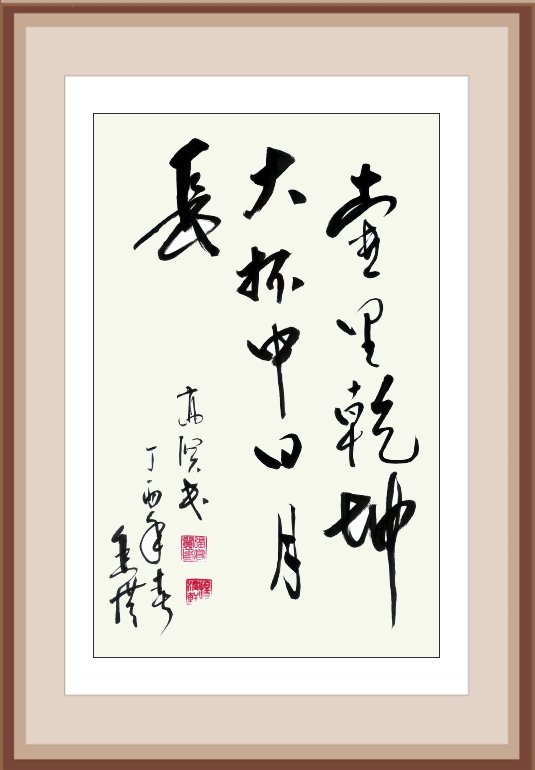 壶里乾坤
大杯中日月
長
丁酉年春